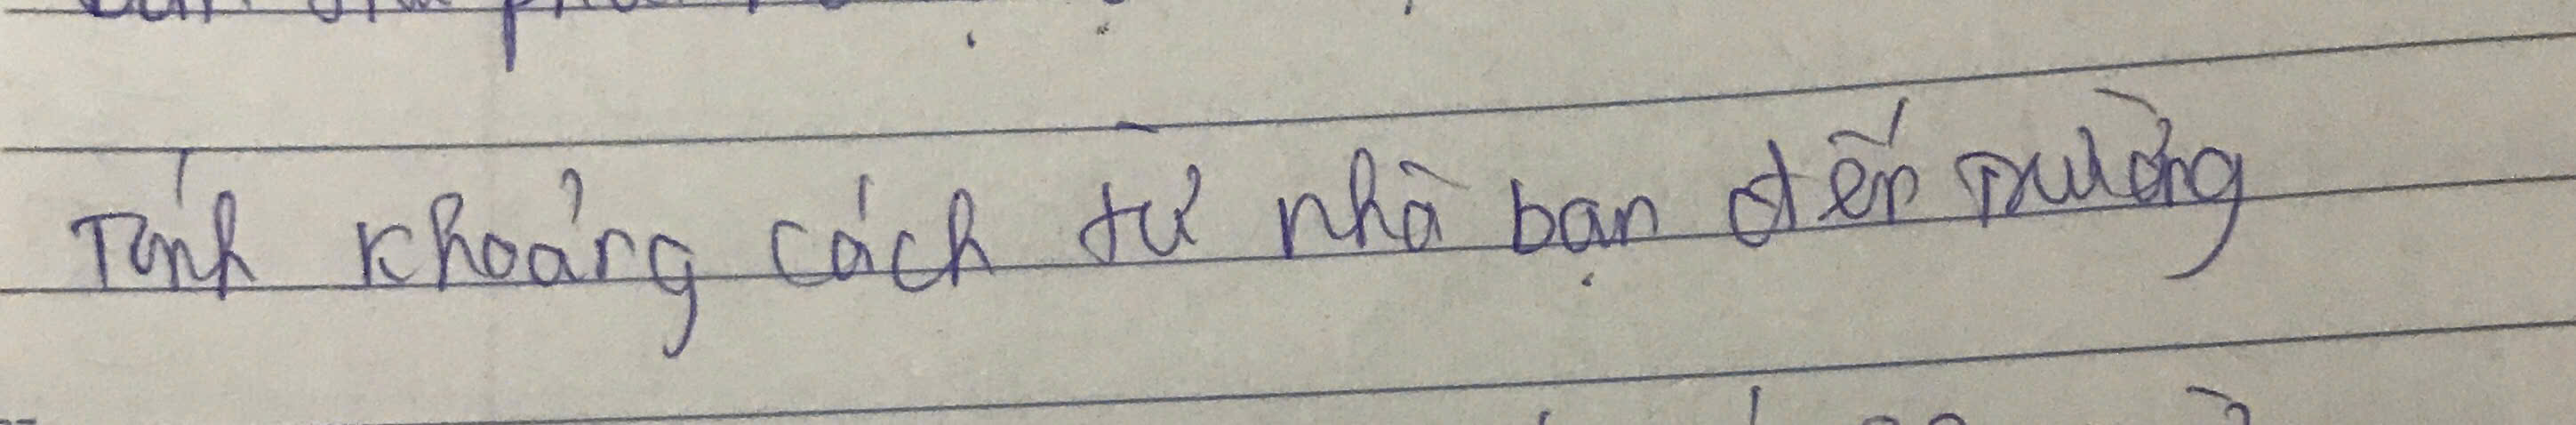 Tính khoảng cách từ nhà bạn đến trường